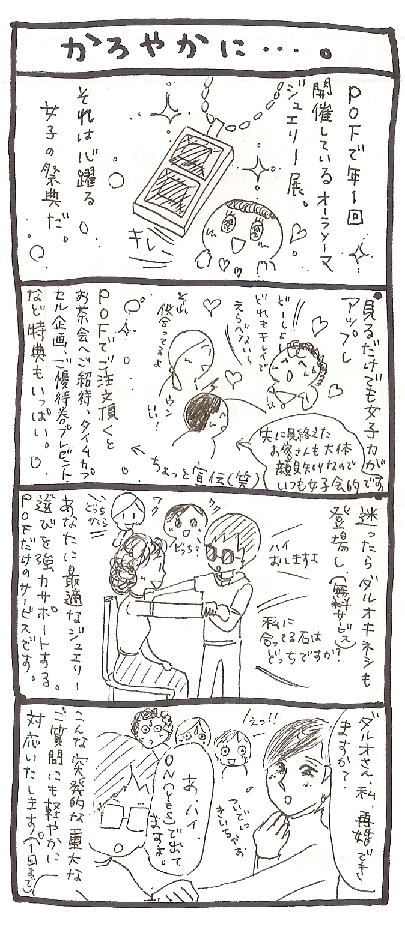 かろやかに…。
POFで年1回
開催しているオーラソーマ
ジュエリー展。
それは心躍る
女子の祭典だ。
キレー
見るだけでも女子力がですね
アップし
どーしよ
どれもキレイで
えらべないー
それ
似合ってるよ
ウン
POFでご注文頂くと
お茶会へご招待、タイムカプ
セル企画、ご優待券プレゼント
など特典もいっぱい。
先に見終えた
お客さんも大体
顔見知りなので
いつも女子会的
←ちょっと宣伝(笑)
迷ったらダルオホネシも
登場し(無料サービス)
ハイ
おしますよ
私に
合ってる石は
どっちですか?
ワク
ワク
どっち?
どっちだろ
あなたに最適なジュエリー
選びを強力サポートする。
POFだけのサービスです。
ダルオさん、私、再婚でき
ますかぁ?
えっ!!
ついでに
きいちゃお
あ、ハイ
ON(Yes)で出て
ますよ
こんな突発的な重大な
ご質問にも軽やかに
対応いたします。